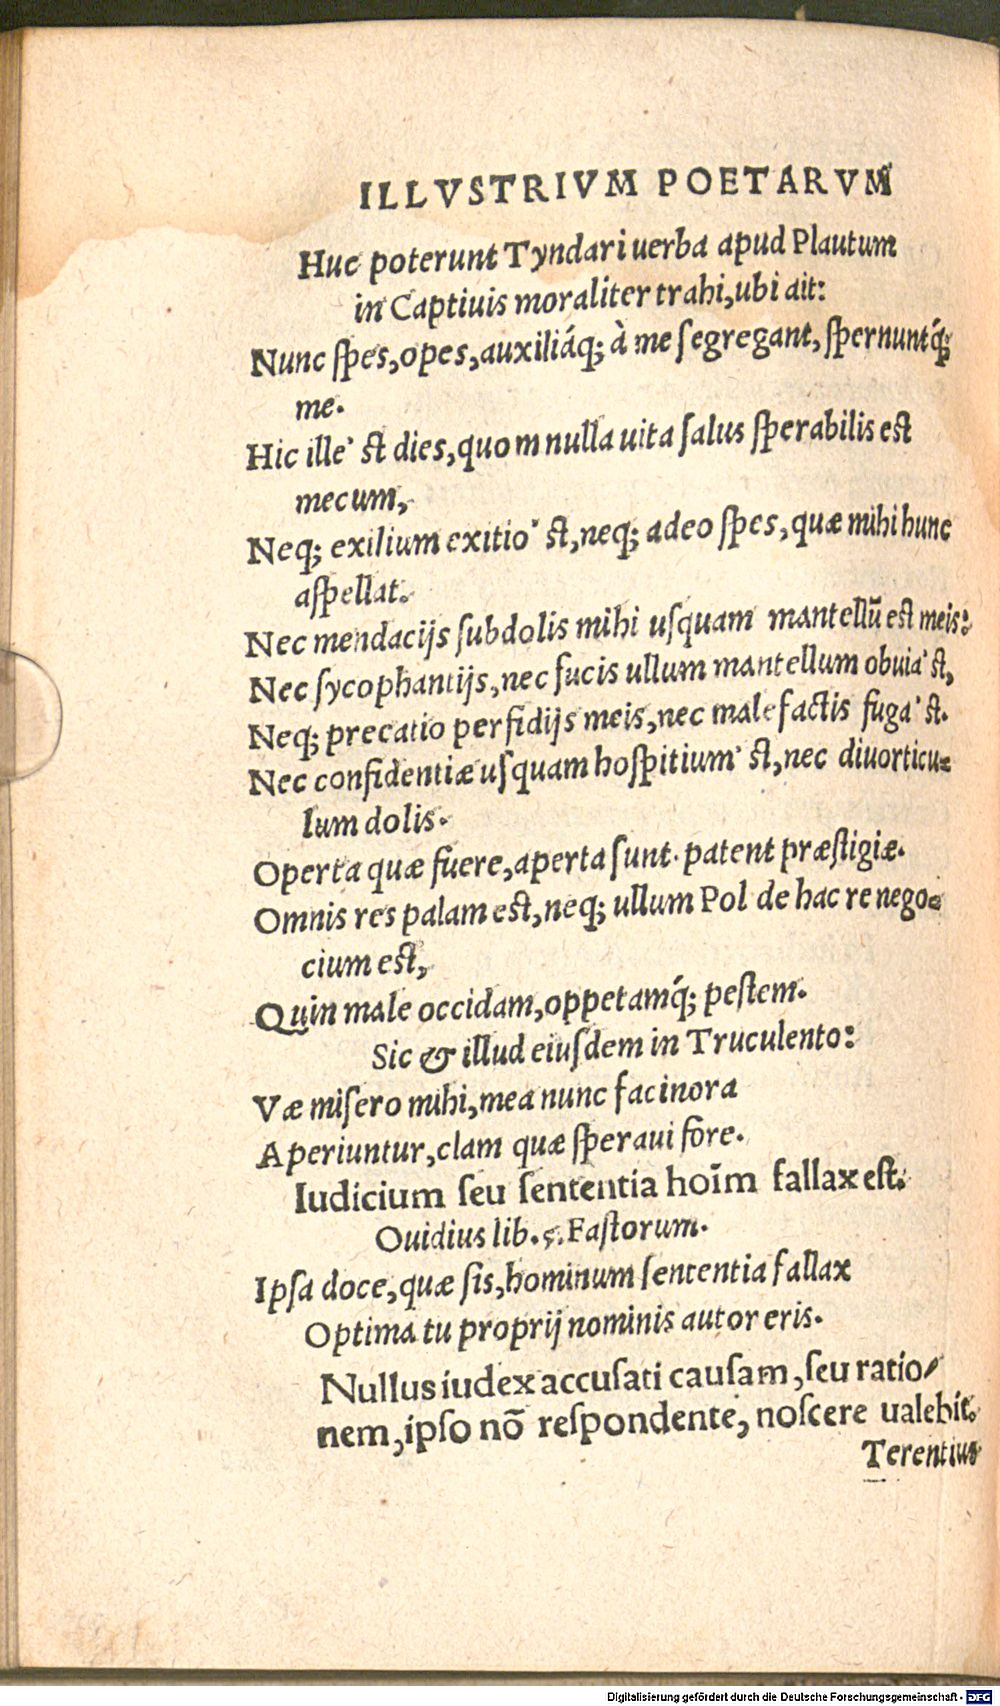 ILLVSTRIVM POETARVM
Huc poterunt Tyndari uerba apud Plautum
in Captiuis moraliter trahi, ubi ait:
Nunc ſpes, opes, auxiliáq; à me ſegregant, ſpernuntq́;
me.
Hic ille’ ſt dies, quom nulla uita ſalus ſperabilis eſt
mecum,
Neq; exilium exitio’ ſt, neq; adeo ſpes, quæ mihi hunc
aſpellat.
Nec mendacijs ſubdolis mihi uſquam mantellū eſt meis:
Nec ſycophantijs, nec fucis ullum mantellum obuia’ ſt,
Neq; precatio perfidijs meis, nec malefactis fuga’ ſt.
Nec confidentiæ uſquam hoſpitium’ ſt, nec diuorticu-
lum dolis.
Operta quæ fuere, aperta ſunt. patent præſtigiæ.
Omnis res palam eſt, neq; ullum Pol de hac re nego-
cium eſt,
Quin male occidam, oppetamq́; peſtem.
Sic & illud eiuſdem in Truculento:
Væ miſero mihi, mea nunc facinora
Aperiuntur, clam quæ ſperaui fore.
Iudicium ſeu ſententia hoīm fallax eſt.
Ouidius lib. 5. Faſtorum.
Ipſa doce, quæ ſis, hominum ſententia fallax
Optima tu proprij nominis autor eris.
Nullus iudex accuſati cauſam, ſeu ratio-
nem, ipſo nō reſpondente, noſcere ualebit.
Terentius
Digitalisierung gefördert durch die Deutsche Forschungsgemeinschaft - DFG